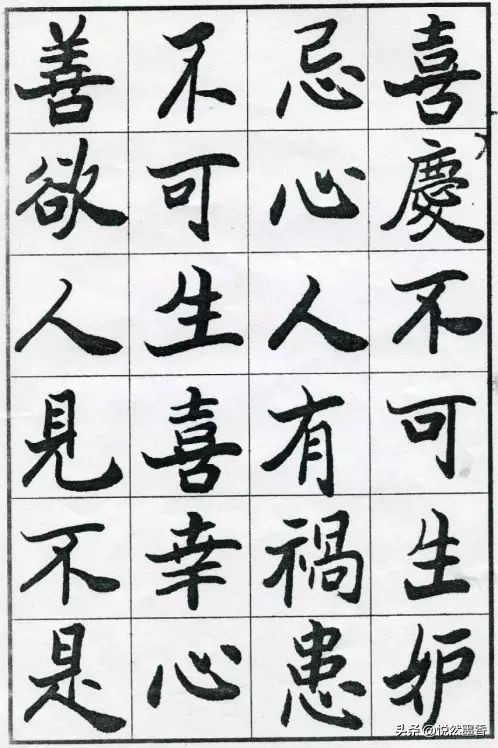 喜慶不可生妒
忌心人有禍患
不可生喜幸心
善欲人見不是
头条@悦然墨香